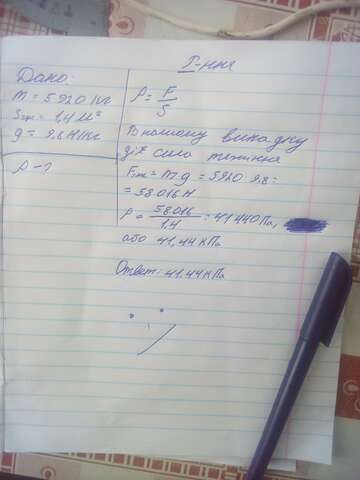 Р-ння
Дано:
m = 5920 кг
Sгус = 1,4 м²
g = 9.8 Н/кг
p - ?
P = F/S
В нашому випадку
діє сила тяжіння
Fтяж = m.g = 5920 · 9.8 =
= 58016 Н
P = 58016/1,4 = 41440 Па,
або 41,44 кПа
Ответ: 41.44 кПа